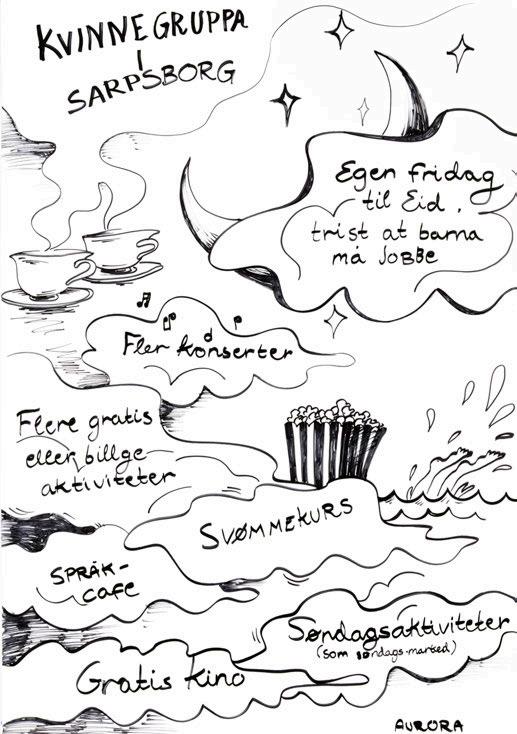 KVINNEGRUPPA
I
SARPSBORG
Egen fridag
til Eid,
trist at barna
må JOBBE
Fler konserter
Flere gratis
eller billge
aktiviteter
SVØMMEKURS
SPRÅK-
cafe
Søndagsaktiviteter
(som søndags-marked)
Gratis kino
AURORA